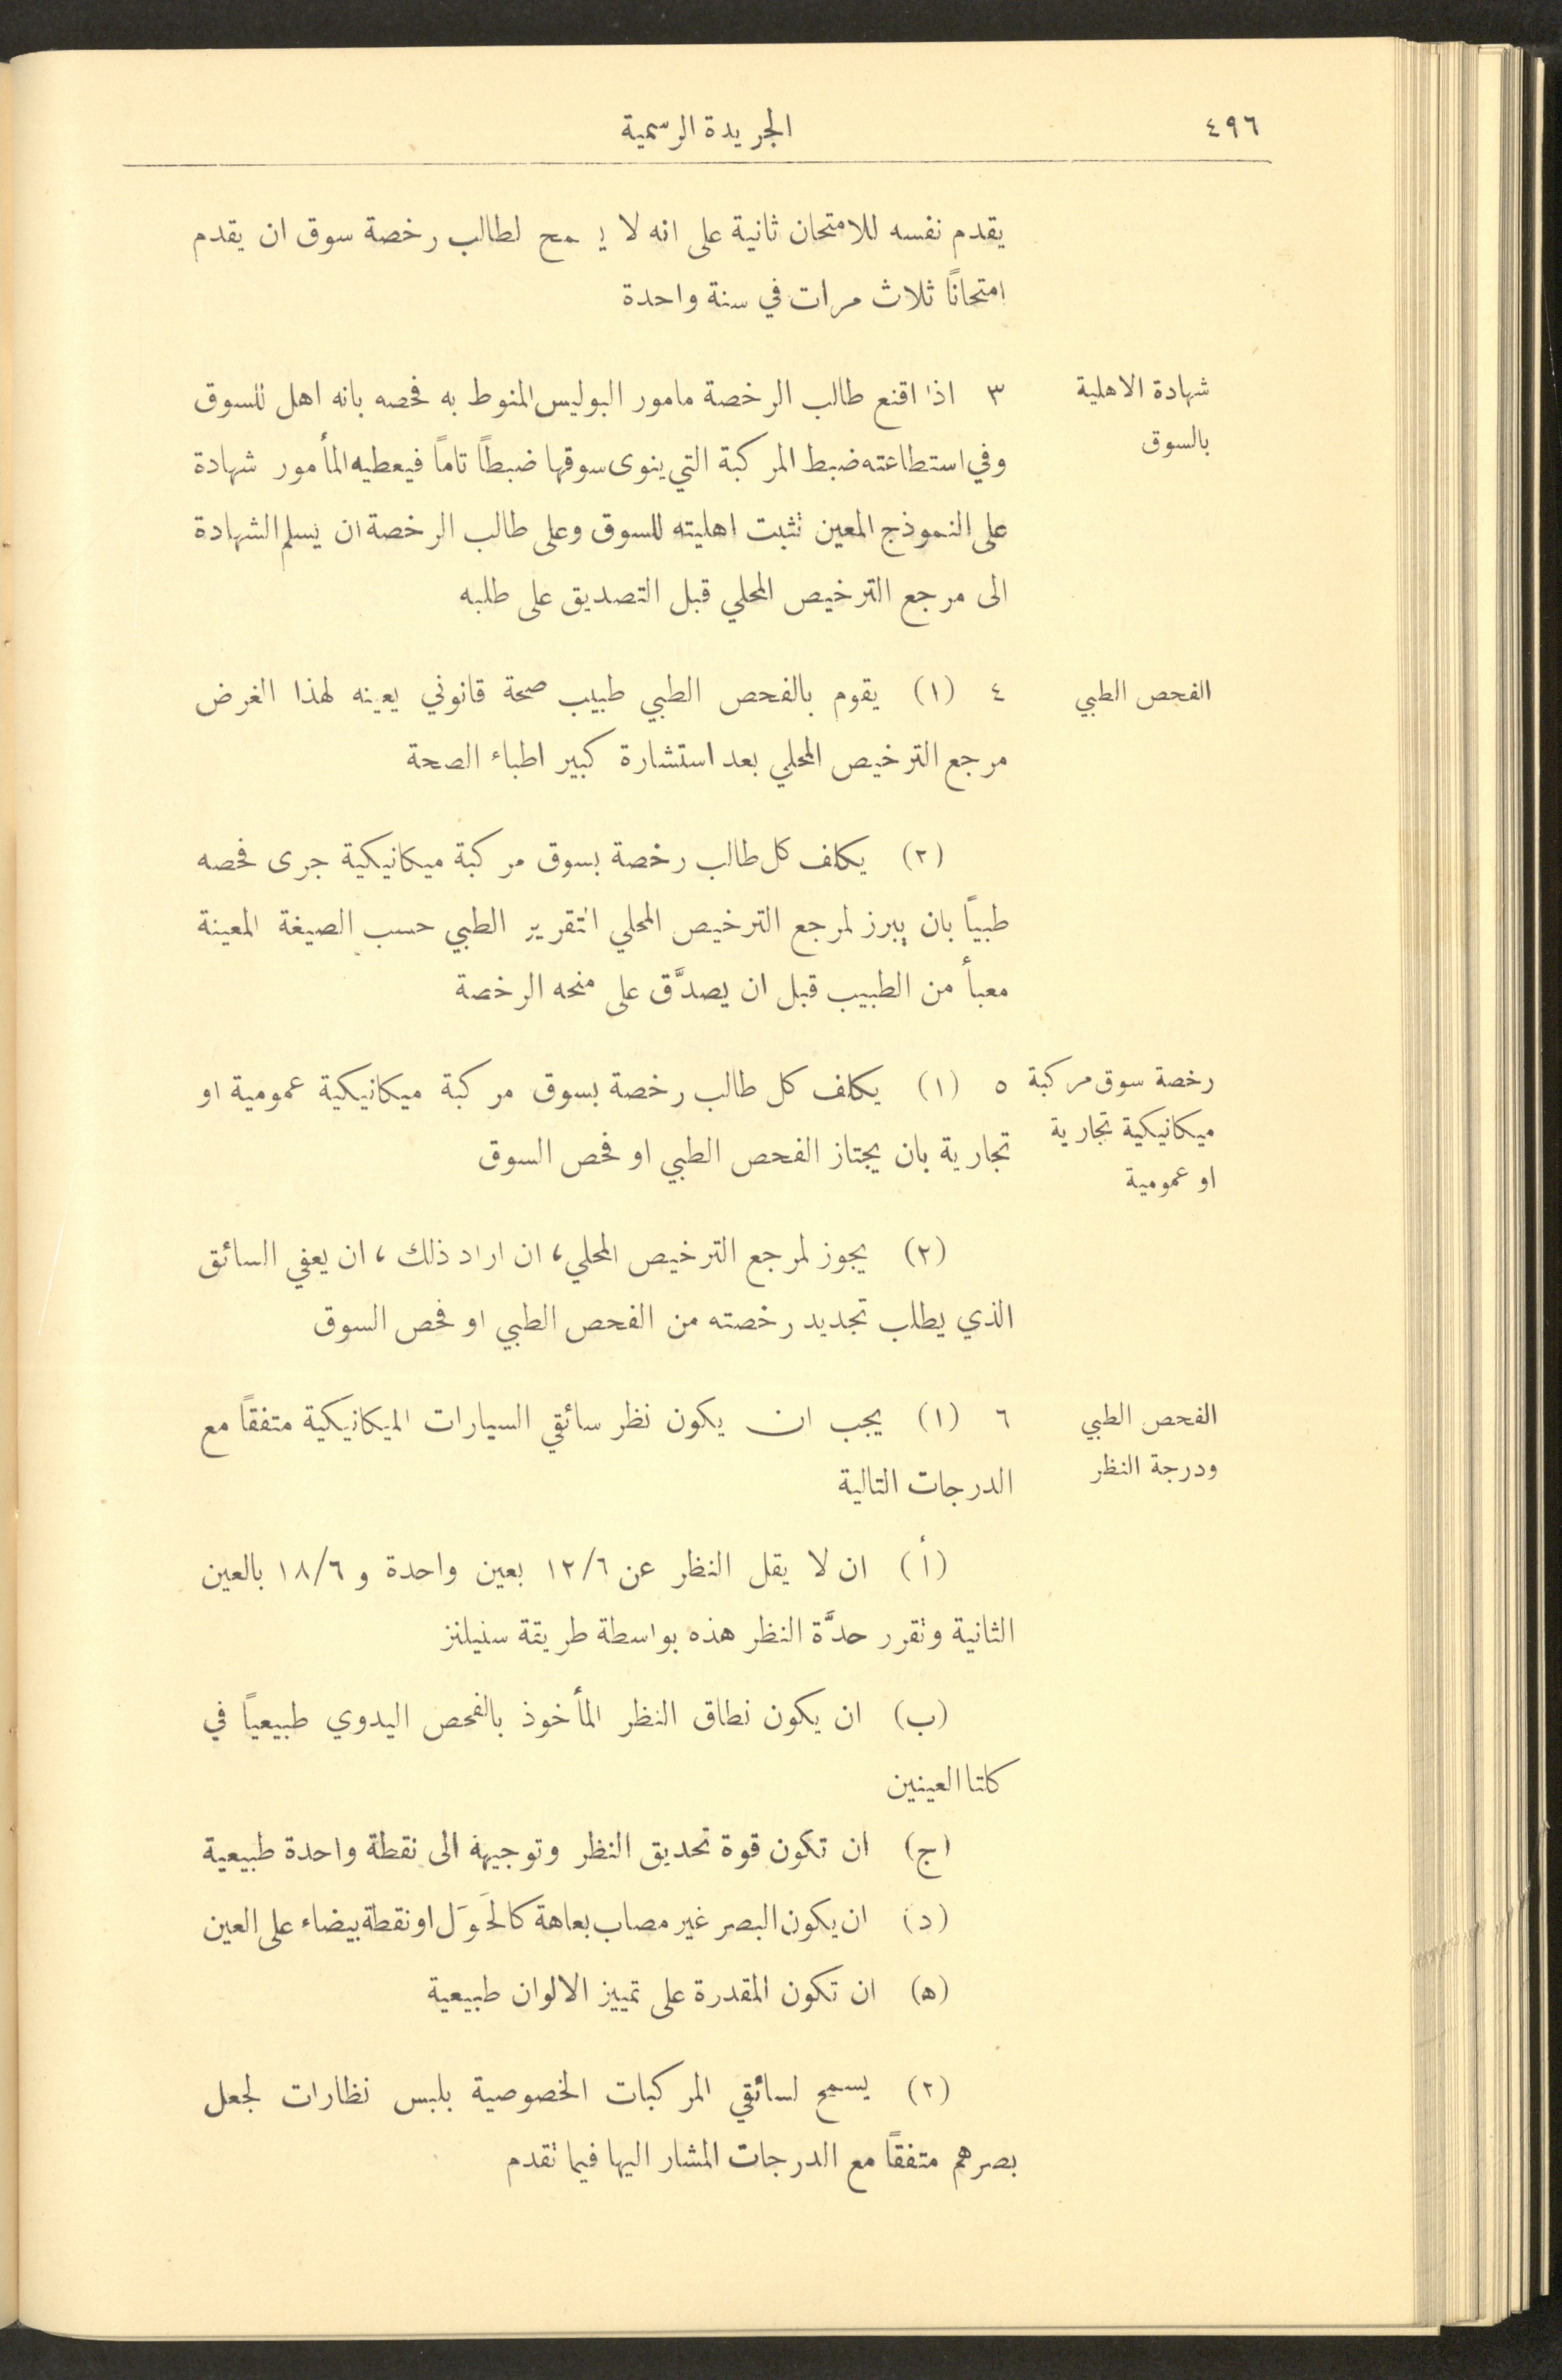 ٤٩٦
الجريدة الرسمية
يقدم نفسه للامتحان ثانية على انه لا يسمح لطالب رخصة سوق ان يقدم
امتحانًا ثلاث مرات في سنة واحدة
شهادة الاهلية
بالسوق
٣ اذا اقنع طالب الرخصة مامور البوليس المنوط به فحصه بانه اهل للسوق
وفي استطاعته ضبط المركبة التي ينوى سوقها ضبطاً تاماً فيعطيه المأمور شهادة
على النموذج المعين تثبت اهليته للسوق وعلى طالب الرخصة ان يسلم الشهادة
الى مرجع الترخيص المحلي قبل التصديق على طلبه
الفحص الطبي
٤ (١) يقوم بالفحص الطبي طبيب صحة قانوني يعينه لهذا الغرض
مرجع الترخيص المحلي بعد استشارة كبير اطباء الصحة
(٢) يكلف كل طالب رخصة بسوق مركبة ميكانيكية جرى فحصه
طبياً بان يبرز لمرجع الترخيص المحلي التقرير الطبي حسب الصيغة المعينة
معبأ من الطبيب قبل ان يصدَّق على منحه الرخصة
رخصة سوق مركبة
ميكانيكية تجارية
او عمومية
٥ (١) يكلف كل طالب رخصة بسوق مركبة ميكانيكية عمومية او
تجارية بان يجتاز الفحص الطبي او فحص السوق
(٢) يجوز لمرجع الترخيص المحلي، ان اراد ذلك، ان يعفي السائق
الذي يطلب تجديد رخصته من الفحص الطبي او فحص السوق
الفحص الطبي
ودرجة النظر
٦ (١) يجب ان يكون نظر سائقي السيارات الميكانيكية متفقاً مع
الدرجات التالية
(أ) ان لا يقل النظر عن ١٢/٦ بعين واحدة و ١٨/٦ بالعين
الثانية وتقرر حدَّة النظر هذه بواسطة طريقة سنيلنز
(ب) ان يكون نطاق النظر المأخوذ بالفحص اليدوي طبيعياً في
كلتا العينين
(ج) ان تكون قوة تحديق النظر وتوجيهه الى نقطة واحدة طبيعية
(د) ان يكون البصر غير مصاب بعاهة كالحَوَل او نقطة بيضاء على العين
(ه) ان تكون المقدرة على تمييز الالوان طبيعية
(٢) يسمح لسائقي المركبات الخصوصية بلبس نظارات لجعل
بصرهم متفقاً مع الدرجات المشار اليها فيما تقدم